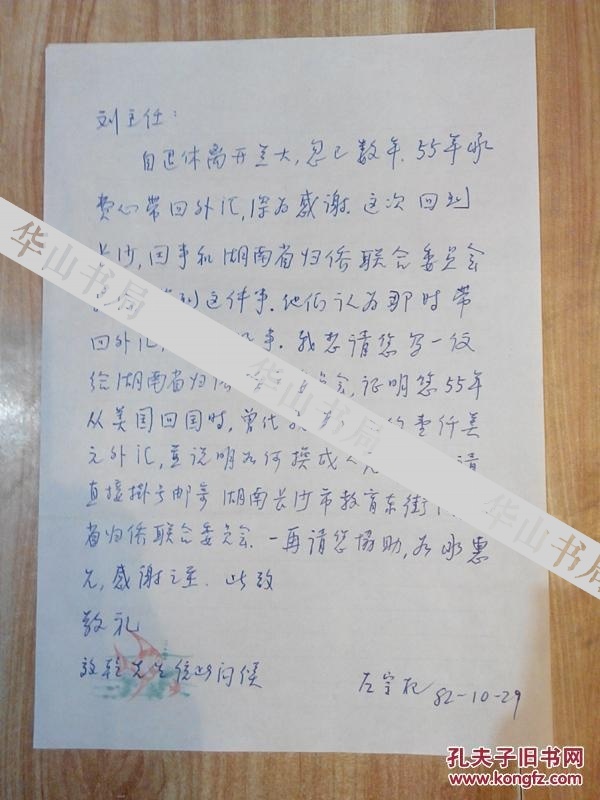 刘主任：
自退休离开兰大，忽已数年．55年承
费心带回外汇，深为感谢．这次回到
长沙，因事和湖南省归侨联合委员会
到这件事．他们认为那时带
回外汇，事．我想请您写一
给湖南省归会，证明您55年
从美国回国时，曾代壹仟美
元外汇，並说明如何换成人请
直接掛号邮寄湖南长沙市教育东街
省归侨联合委员会．一再请您协助，如承惠
允，感谢之至．此致
敬礼
先生统此问候
左宗杞 82-10-29
华山书局
华山书局
华山书局
孔夫子旧书网
www.kongfz.com